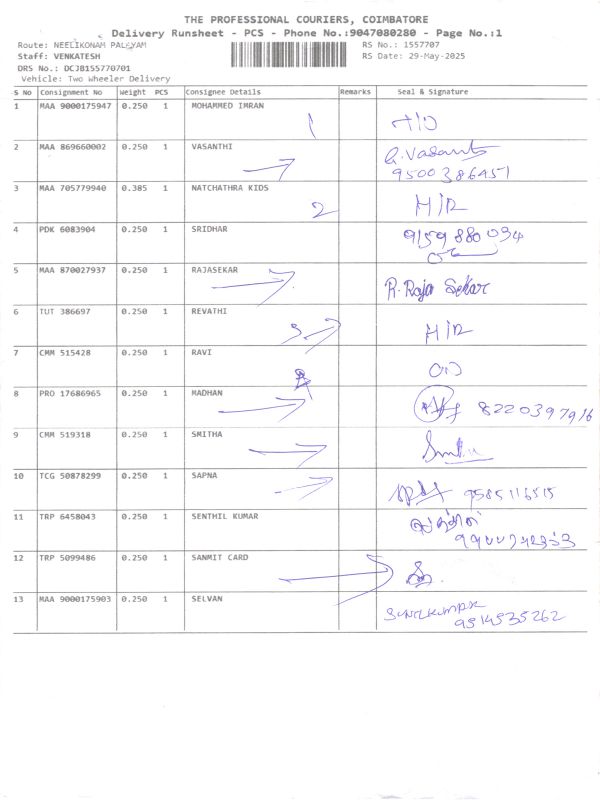 THE PROFESSIONAL COURIERS, COIMBATORE
Delivery Runsheet - PCS - Phone No.:9047080280 - Page No.:1
Route: NEELIKONAM PALAYAM
RS No.: 1557707
Staff: VENKATESH
RS Date: 29-May-2025
DRS No.: DCJB155770701
Vehicle: Two Wheeler Delivery
S No Consignment No Weight PCS Consignee Details Remarks Seal & Signature
1 MAA 9000175947 0.250 1 MOHAMMED IMRAN
1
2 MAA 869660002 0.250 1 VASANTHI G.Vasanthi
9500386451
3 MAA 705779940 0.385 1 NATCHATHRA KIDS
2 H/R
4 PDK 6083904 0.250 1 SRIDHAR 9159880034
5 MAA 870027937 0.250 1 RAJASEKAR
R.Raja Sekar
6 TUT 386697 0.250 1 REVATHI
3 H/R
7 CMM 515428 0.250 1 RAVI
8 PRO 17686965 0.250 1 MADHAN
8220397916
9 CMM 519318 0.250 1 SMITHA
10 TCG 50878299 0.250 1 SAPNA
9585116515
11 TRP 6458043 0.250 1 SENTHIL KUMAR
12 TRP 5099486 0.250 1 SANMIT CARD
13 MAA 9000175903 0.250 1 SELVAN
9514535262